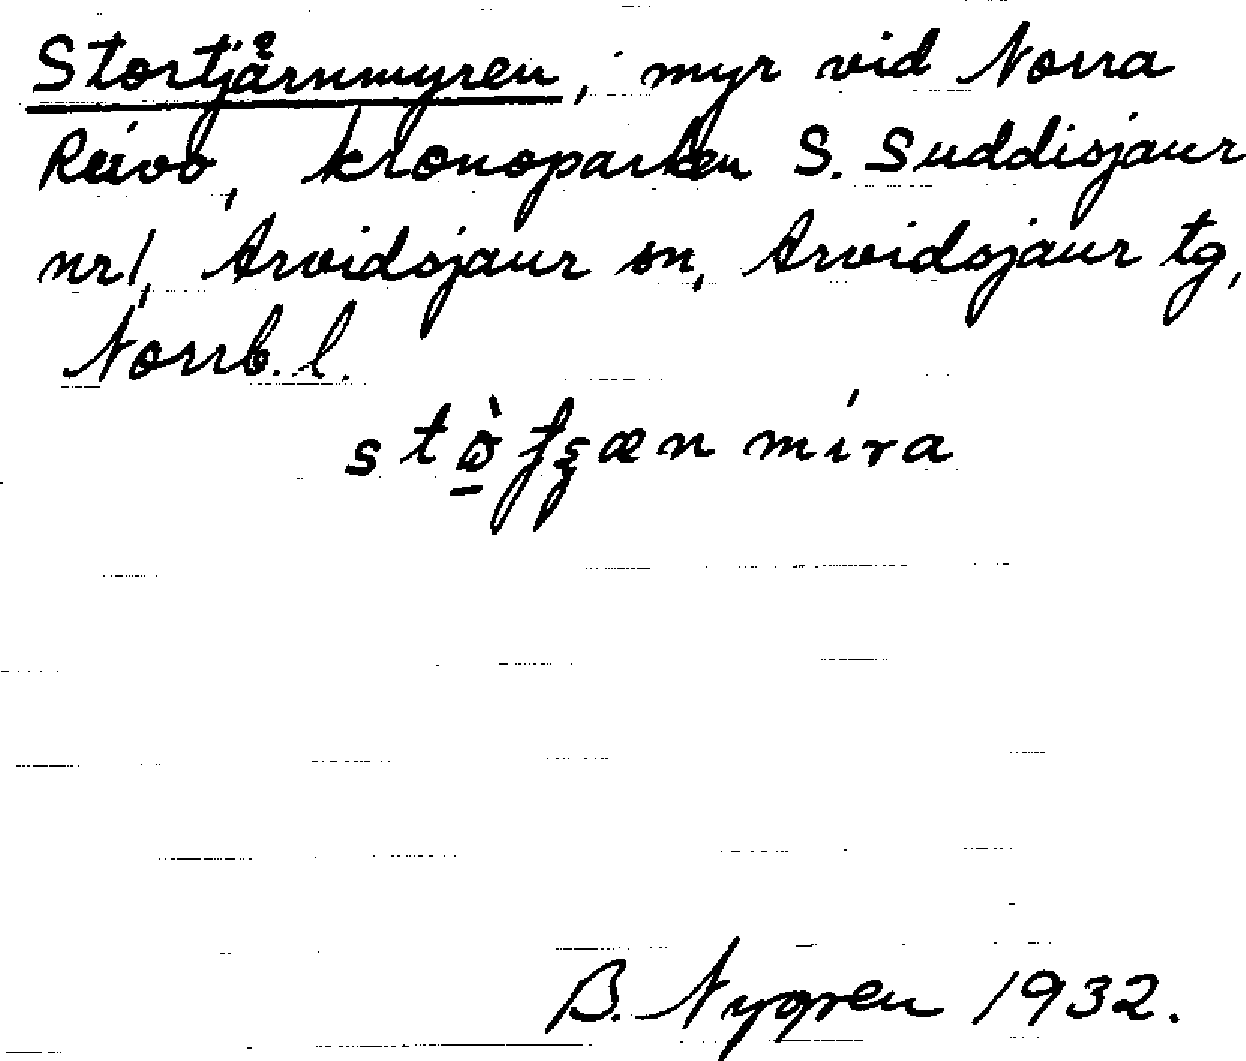 Stortjårnmyren, myr vid Norra
Reivo, kronoparken S. Suddisjaur
nr1, Arvidsjaur sn, Arvidsjaur tg,
Norrb. l.
B. Nygren 1932.